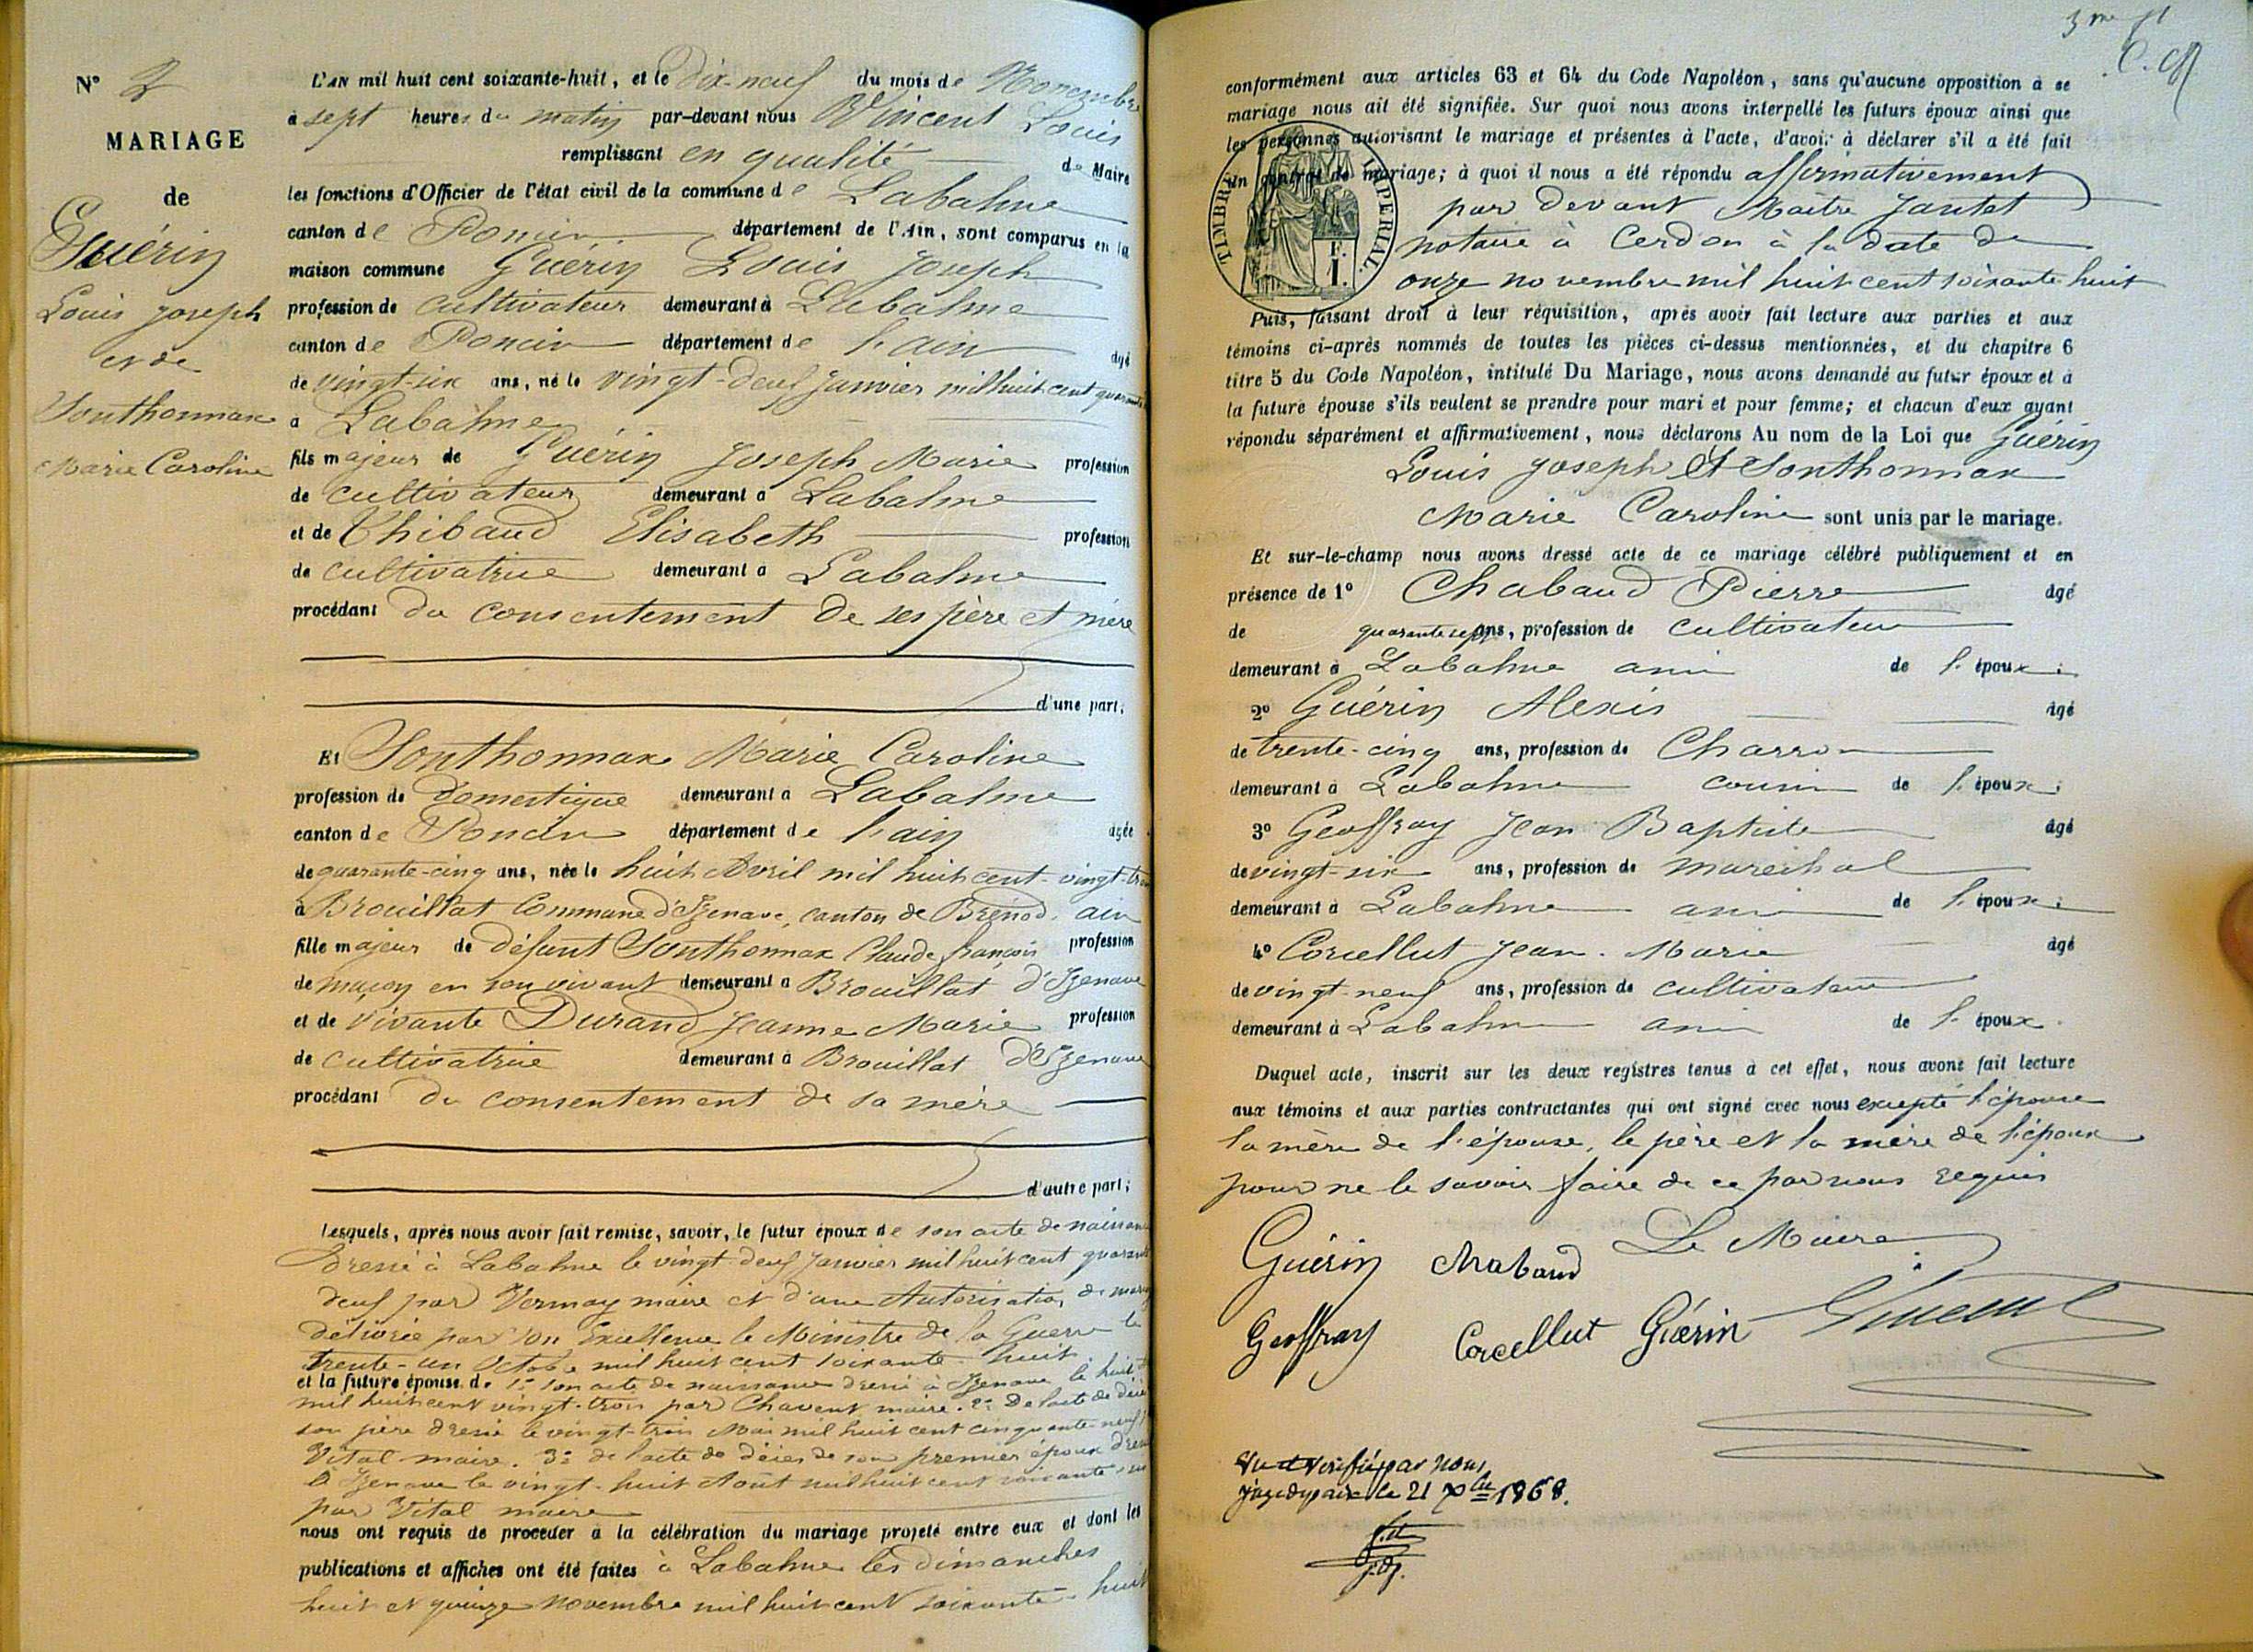 N° 2
MARIAGE
de
Guérin
Louis Joseph
et de
Sonthonnax
Marie Caroline
L'AN mil huit cent soixante-huit, et le dix-neuf du mois de Novembre
à sept heures du matin par-devant nous Vincent Louis
remplissant en qualité de Maire
les fonctions d'Officier de l'état civil de la commune de Labalme
canton de Poncin département de l'Ain, sont comparus en la
maison commune Guérin Louis Joseph
profession de cultivateur demeurant à Labalme
canton de Poncin département de l'ain âgé
de vingt-six ans, né le vingt-deux Janvier mil huit cent quarante
à Labalme
fils majeur de Guérin Joseph Marie profession
de cultivateur demeurant à Labalme
et de Thibaud Elisabeth profession
de cultivatrice demeurant à Labalme
procédant du consentement de ses père et mère
d'une part;
Et Sonthonnax Marie Caroline
profession de domestique demeurant à Labalme
canton de Poncin département de l'ain âgée
de quarante-cinq ans, née le huit Avril mil huit cent-vingt-trois
à Brouillat Commune d'Izenave, canton de Brénod, ain
fille majeur de défunt Sonthonnax Claude françois profession
de maçon en son vivant demeurant à Brouillat d'Izenave
et de vivante Durand Jeanne Marie profession
de cultivatrice demeurant à Brouillat d'Izenave
procédant du consentement de sa mère
d'autre part;
Lesquels, après nous avoir fait remise, savoir, le futur époux de son acte de naissance
dressé à Labalme le vingt-deux Janvier mil huit cent quarante
deux par Vermay maire et d'une Autorisation de
délivrée par son Excellence le Ministre de la Guerre le
trente-un Octobre mil huit cent soixante-huit
et la future épouse de 1° son acte de naissance dressé à Izenave le huit
mil huit cent vingt-trois par Chavent maire. 2° De l'acte de décès
son père dressé le vingt-trois Mai mil huit cent cinquante-neuf
Vital maire. 3° de l'acte de décès de son premier époux dressé
à Izenave le vingt-huit Août mil huit cent soixante
par Vital maire
nous ont requis de procéder à la célébration du mariage projeté entre eux et dont les
publications et affiches ont été faites à Labalme les dimanches
huit et quinze novembre mil huit cent soixante-huit
3me
conformément aux articles 63 et 64 du Code Napoléon, sans qu'aucune opposition à se
mariage nous ait été signifiée. Sur quoi nous avons interpellé les futurs époux ainsi que
les personnes autorisant le mariage et présentes à l'acte, d'avoir à déclarer s'il a été fait
un contrat de mariage; à quoi il nous a été répondu affirmativement
TIMBRE IMPERIAL
F.
1.
par devant Maître Jantet
notaire à Cerdon à la date de
onze novembre mil huit cent soixante huit
Puis, faisant droit à leur réquisition, après avoir fait lecture aux parties et aux
témoins ci-après nommés de toutes les pièces ci-dessus mentionnées, et du chapitre 6
titre 5 du Code Napoléon, intitulé Du Mariage, nous avons demandé au futur époux et à
la future épouse s'ils veulent se prendre pour mari et pour femme; et chacun d'eux ayant
répondu séparément et affirmativement, nous déclarons Au nom de la Loi que Guérin
Louis Joseph Et Sonthonnax
Marie Caroline sont unis par le mariage.
Et sur-le-champ nous avons dressé acte de ce mariage célébré publiquement et en
présence de 1° Chabaud Pierre âgé
de quarante sept ans, profession de cultivateur
demeurant à Labalme ami de l'époux;
2° Guérin Alexis âgé
de trente-cinq ans, profession de Charron
demeurant à Labalme cousin de l'époux;
3° Geoffray Jean Baptiste âgé
de vingt-six ans, profession de maréchal
demeurant à Labalme ami de l'époux;
4° Corcellut Jean-Marie âgé
de vingt-neuf ans, profession de cultivateur
demeurant à Labalme ami de l'époux.
Duquel acte, inscrit sur les deux registres tenus à cet effet, nous avons fait lecture
aux témoins et aux parties contractantes qui ont signé avec nous excepté l'épouse
la mère de l'épouse, le père et la mère de l'époux
pour ne le savoir faire de ce par nous requis
Le Maire
Guérin Chabaud
Geoffray Corcellut Guérin Vincent
Vu et vérifié par nous
juge de paix le 21 Xbre 1868.